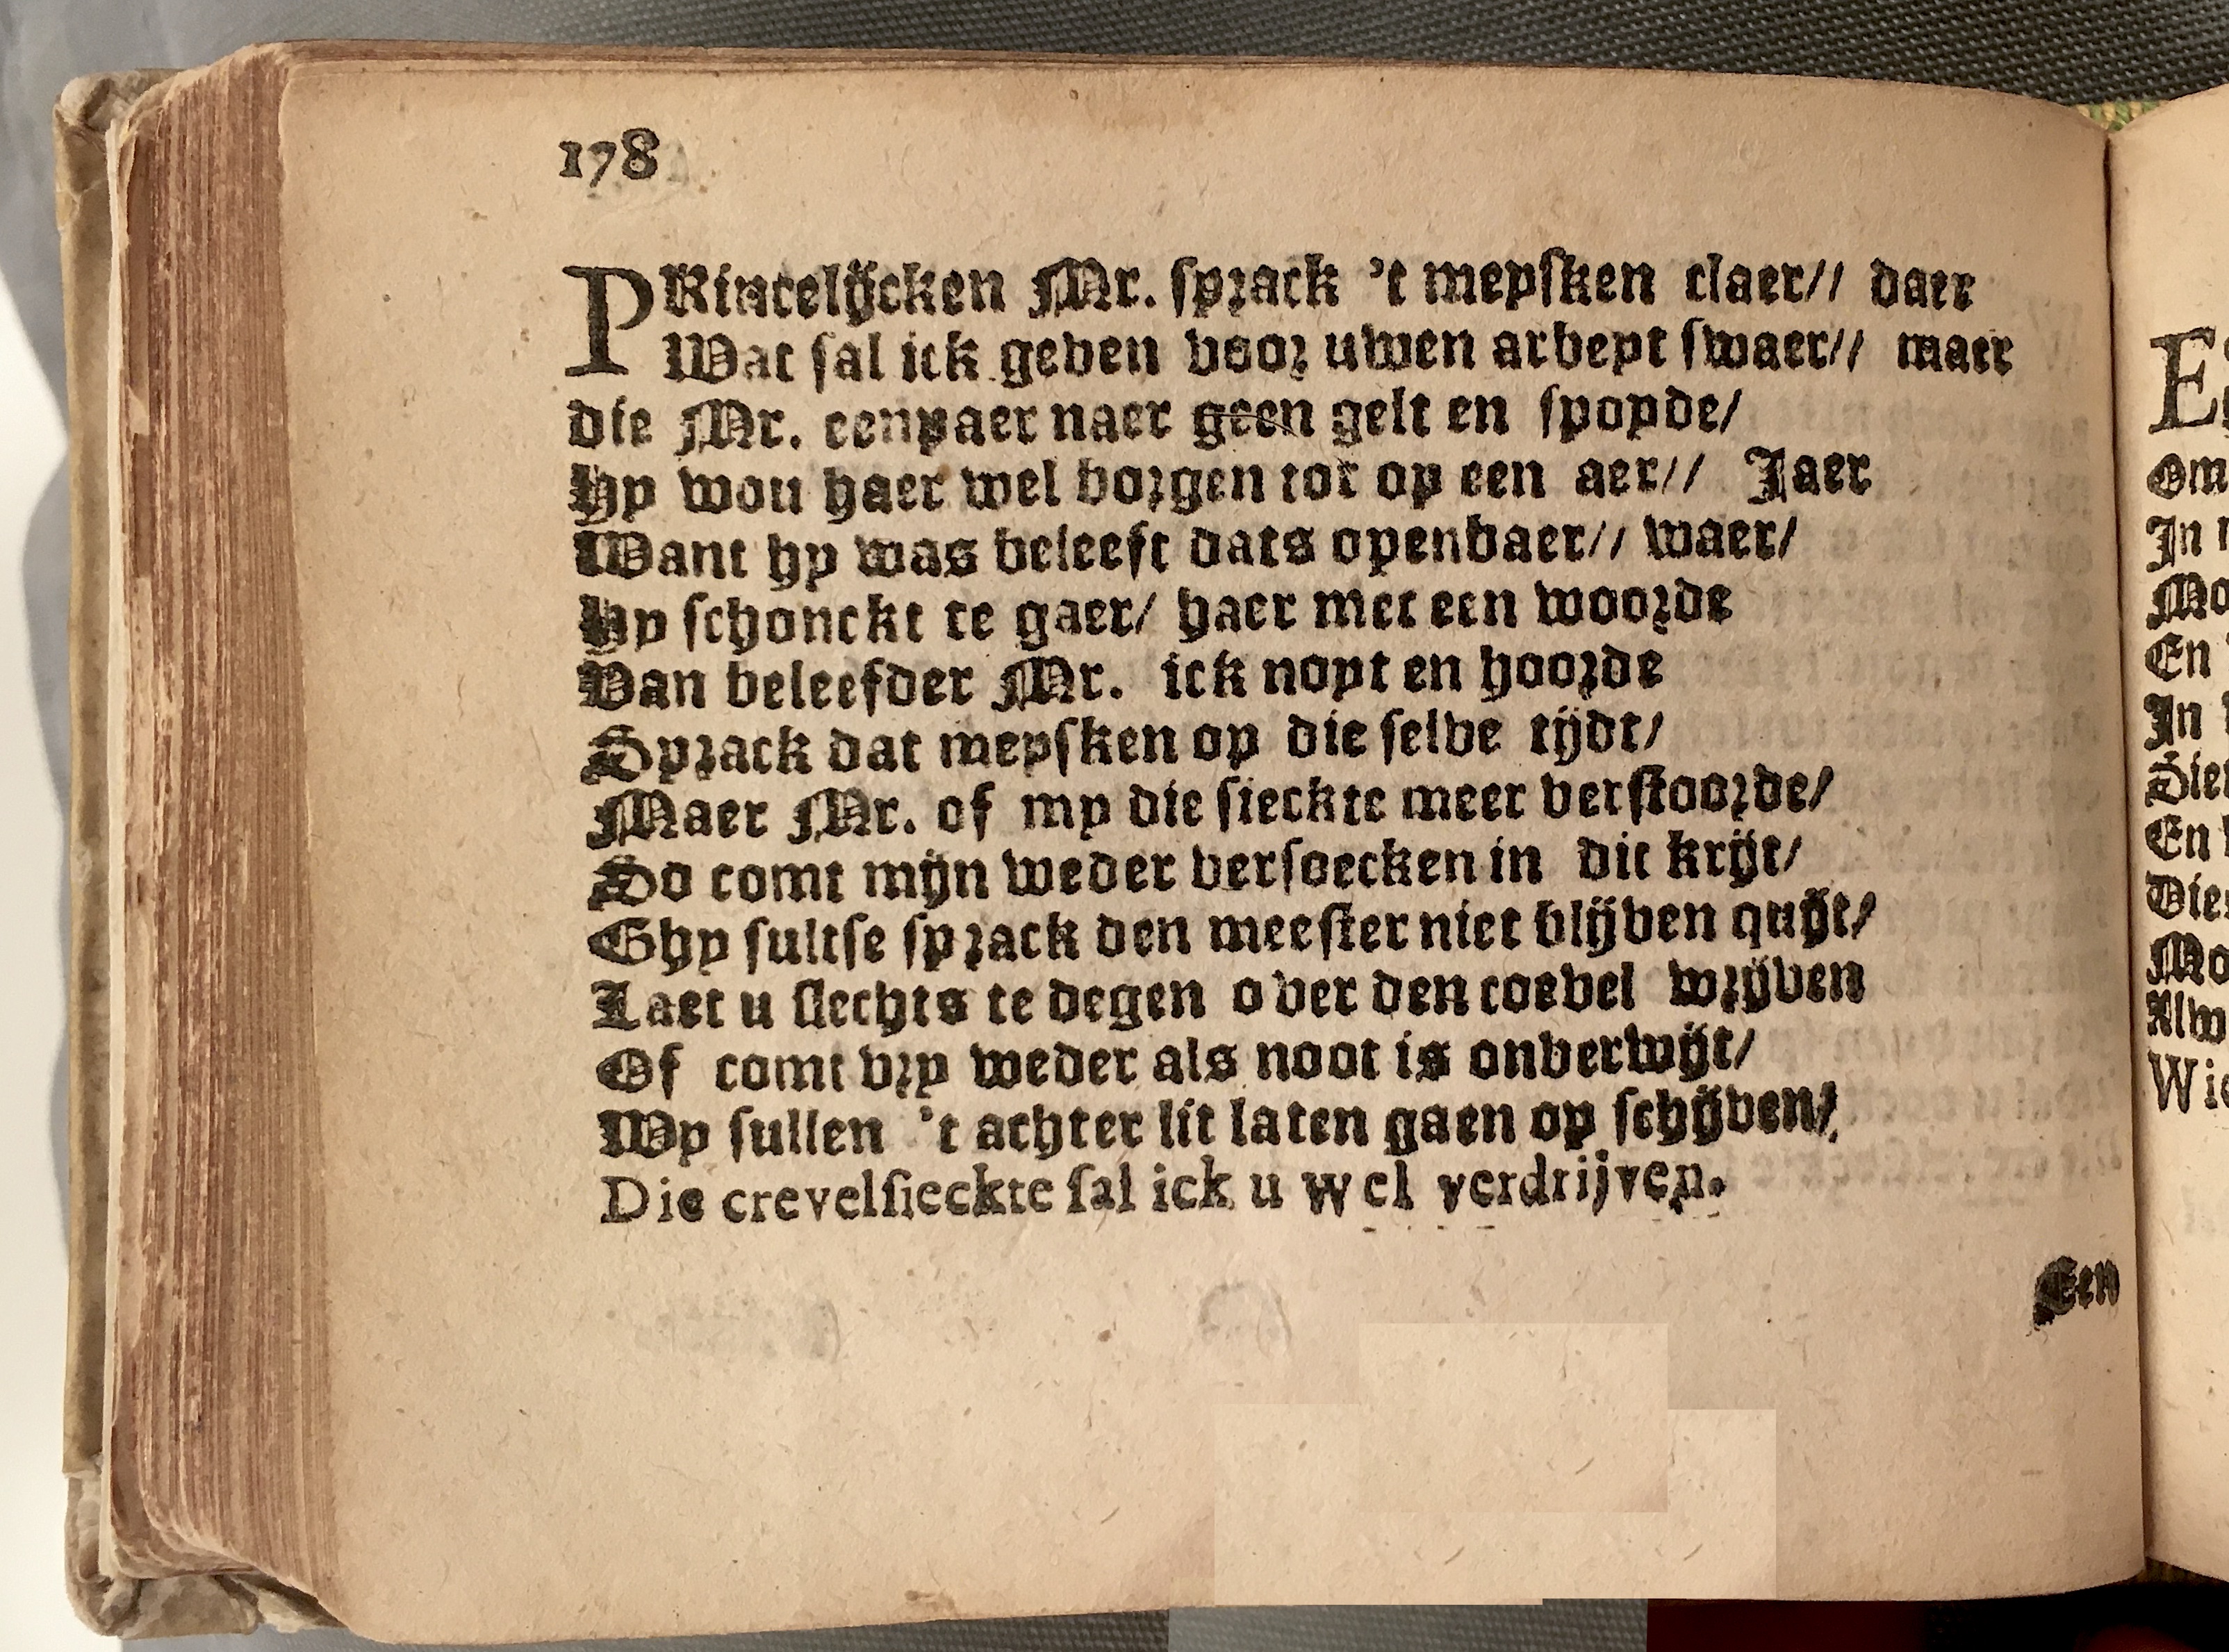 178
PRincelijcken Mr. sprack 't meysken claer// daer
Wat sal ick geven voor uwen arbeyt swaer// maer
die Mr. eenpaer naer geen gelt en spoyde/
Hy wou haer wel borgen tot op een aer// Jaer
Want hy was beleeft dats openbaer// waer/
Hy schonckt te gaer/ haer met een woorde
Van beleefder Mr. ick noyt en hoorde
Sprack dat meysken op die selve tijdt/
Maer Mr. of my die sieckte meer verstoorde/
So comt mijn weder versoecken in dit krijt/
Ghy sultse sprack den meester niet blijven quijt/
Laet u slechts te degen over den coevel wrijven
Of comt vry weder als noot is onverwijt/
Wy sullen 't achter lit laten gaen op schijven/
Die crevelsieckte sal ick u wel verdrijven.
Een
Om
In
Mo
En
In
Sie
En
Die
Mo
Alw
Wie